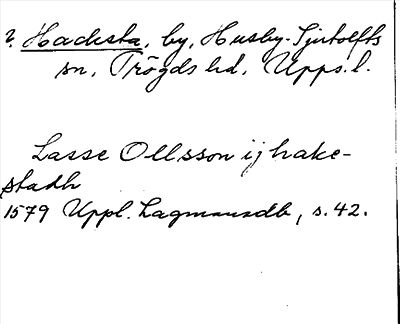 ?. Hacksta, by, Husby-Sjutolfts
sn, Trögds hd, Upps. l.
Lasse Ollsson ij hake-
stadh
1579 Uppl. Lagmansdb, s. 42.